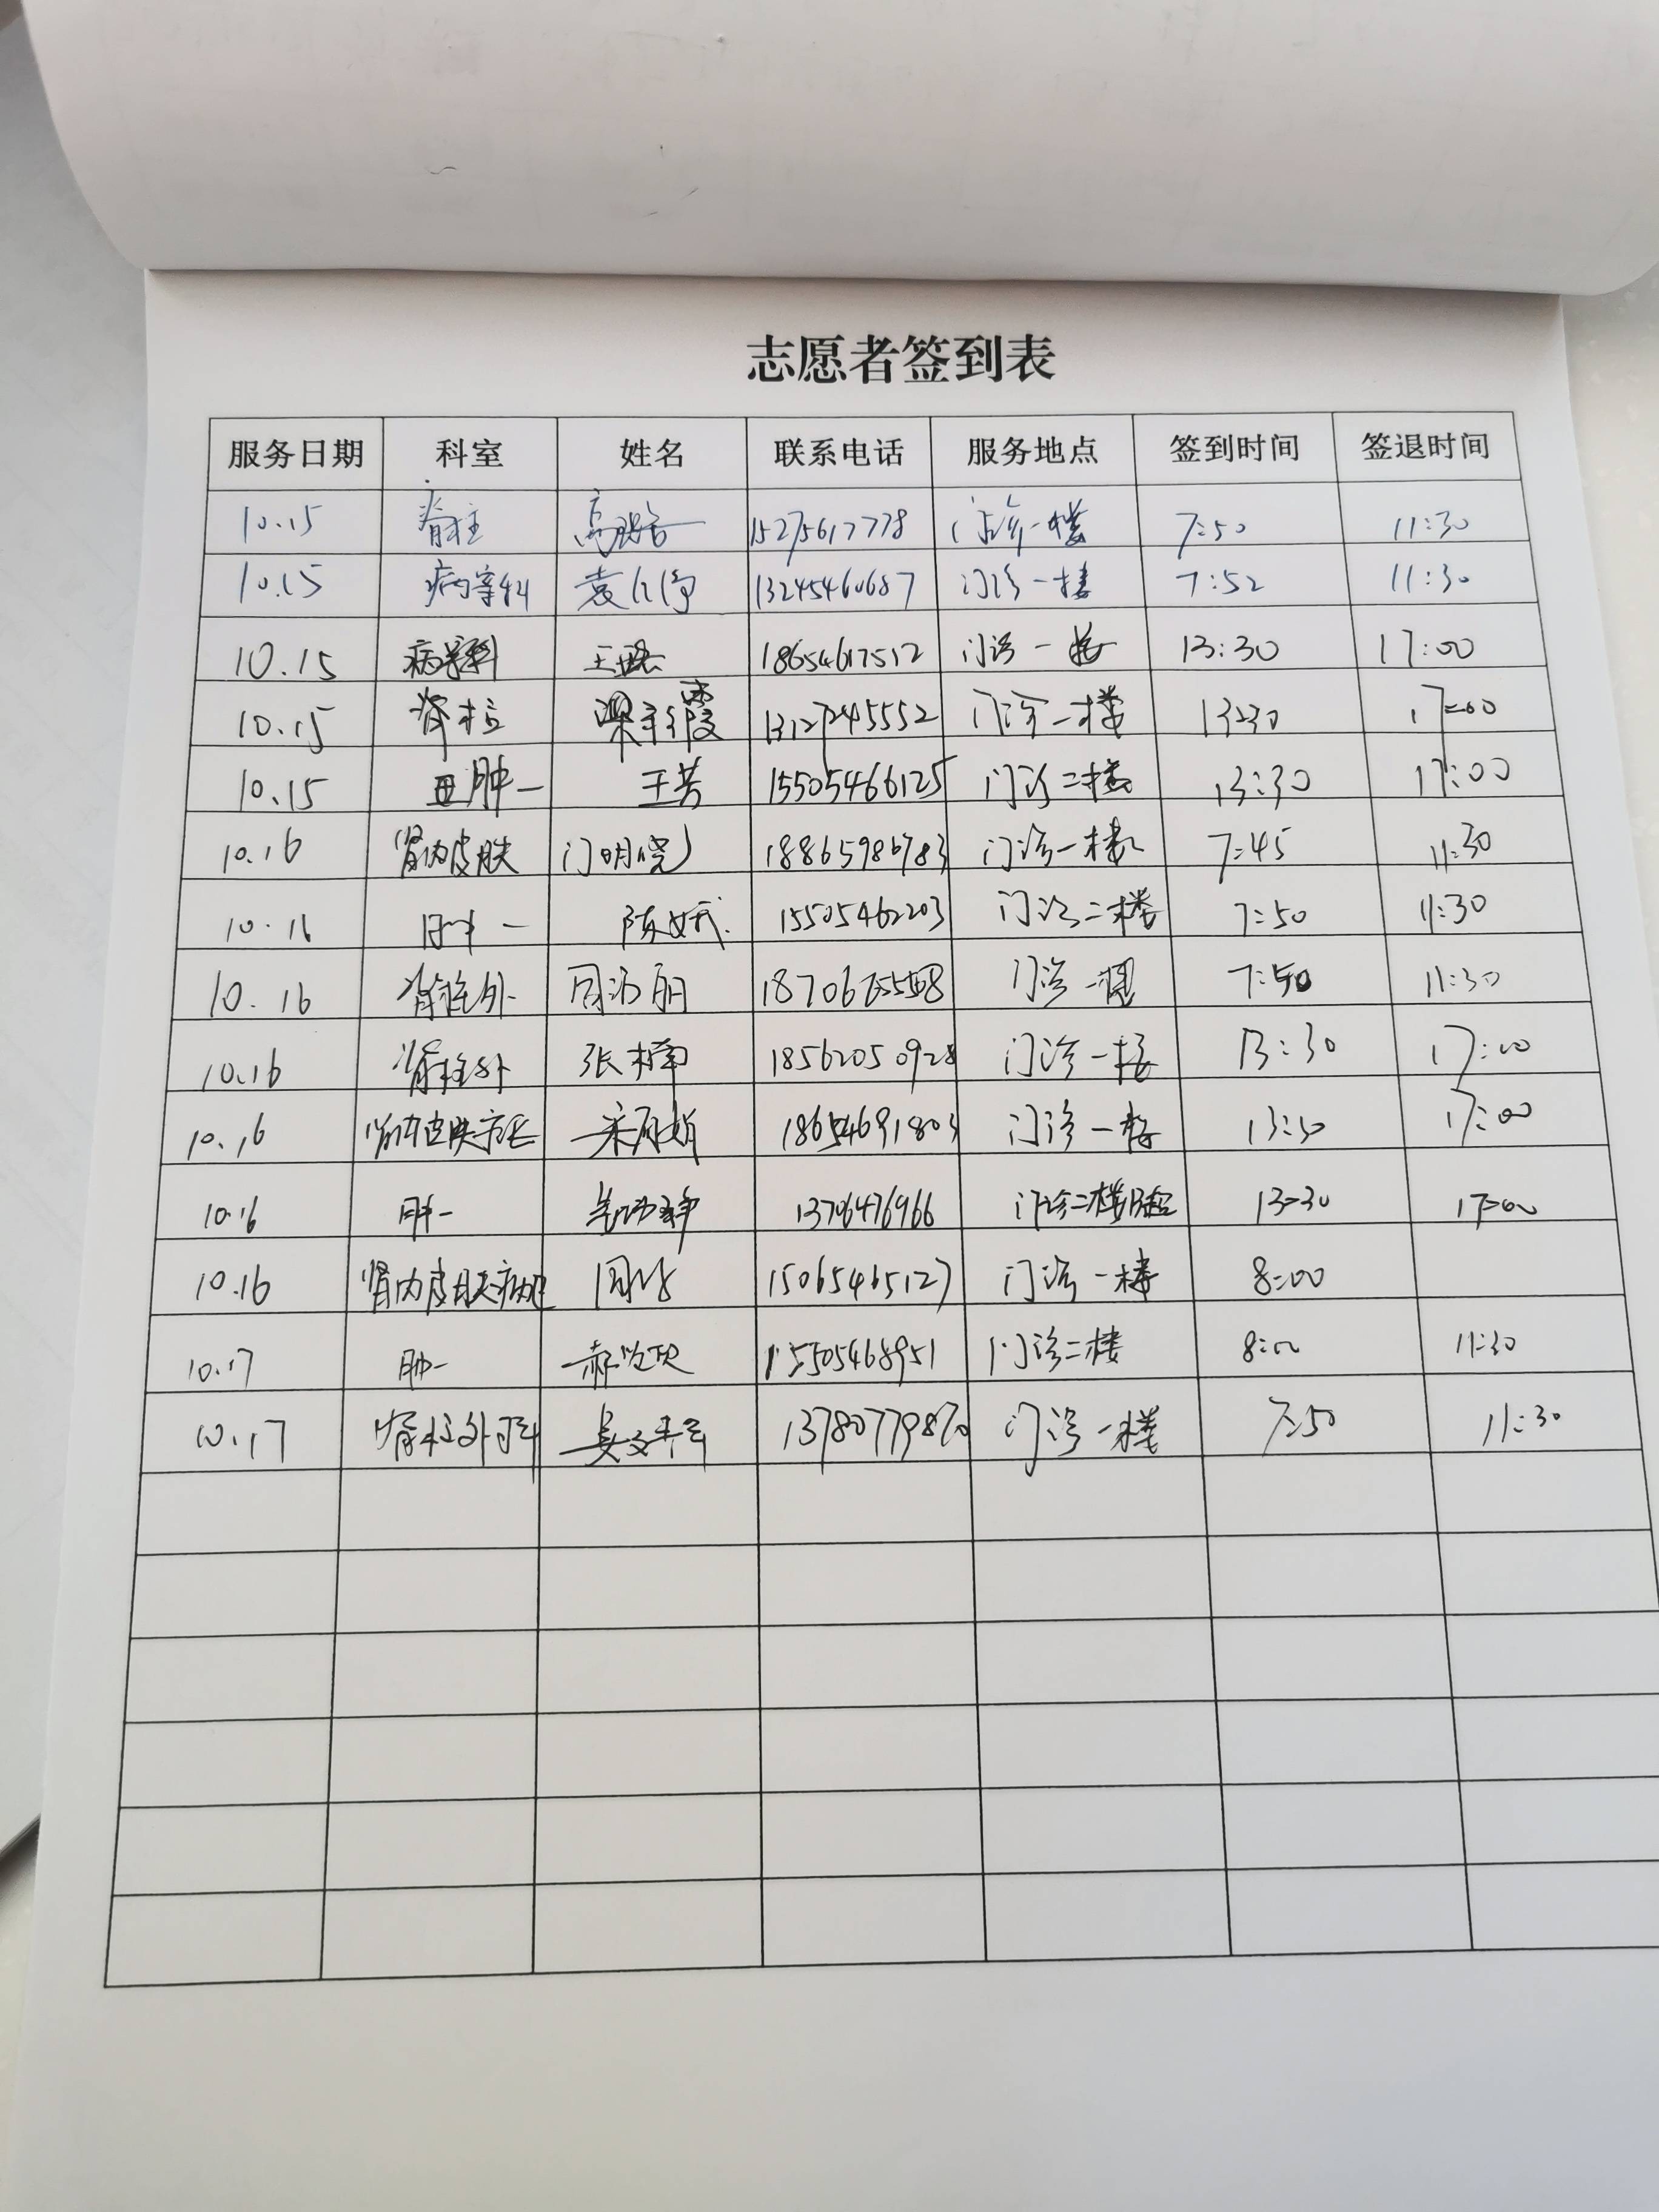 志愿者签到表
服务日期 科室 姓名 联系电话 服务地点 签到时间 签退时间
10.15 脊柱 15275617778 门诊一楼 7:50 11:30
10.15 病案科 袁 13245460687 门诊一楼 7:52 11:30
10.15 病案科 王 18654617512 门诊一楼 13:30 17:00
10.15 脊柱 梁 霞 13127245552 门诊一楼 13:30 17:00
10.15 肿一 王芳 15505466125 门诊二楼 13:30 17:00
10.16 肾内皮肤 门明晓 18865986783 门诊一楼 7:45 11:30
10.16 肿一 陈 15505462203 门诊二楼 7:50 11:30
10.16 脊柱外 周 丽 门诊一楼 7:50 11:30
10.16 脊柱外 张楠 18562050928 门诊一楼 13:30 17:00
10.16 肾内皮肤 18654691803 门诊一楼 13:30 17:00
10.16 肿一 1376476966 门诊二楼 13:30 17:00
10.16 肾内皮肤 周 15065465127 门诊一楼 8:00
10.17 肿一 郝 15505468951 门诊二楼 8:00 11:30
10.17 脊柱外科 姜文 13780779870 门诊一楼 7:50 11:30